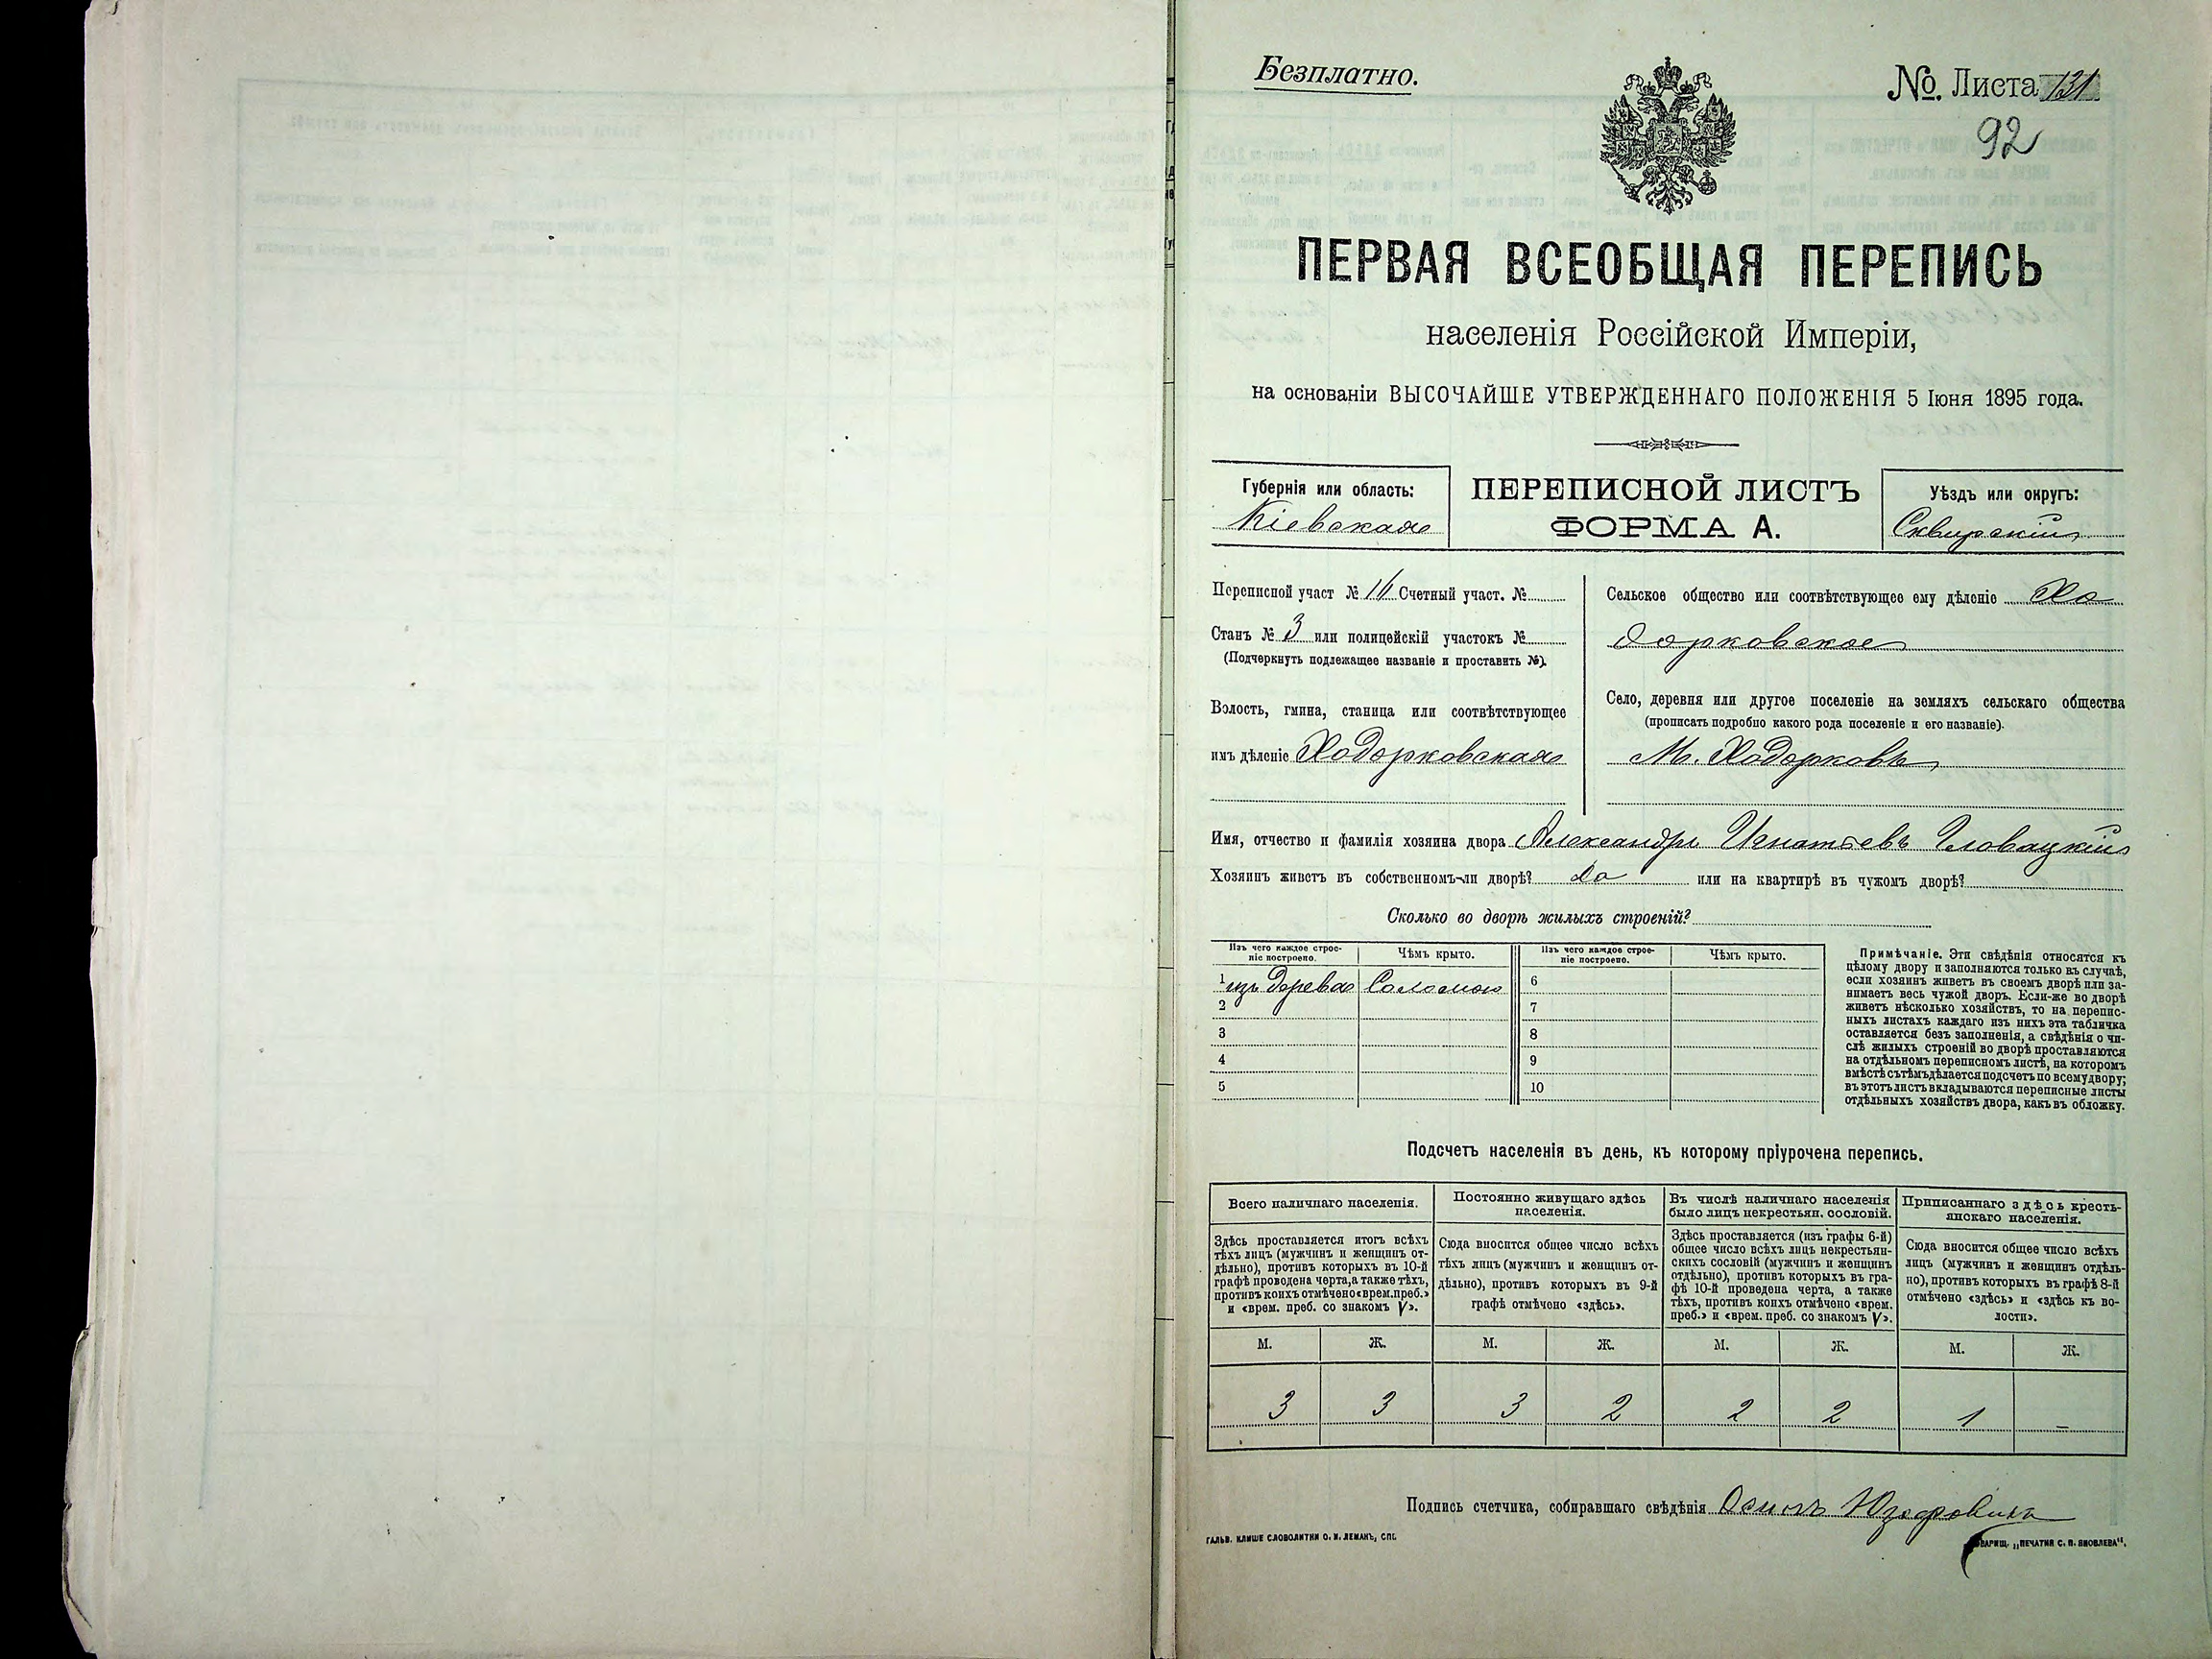 Безплатно.
№ Листа 131
92
ПЕРВАЯ ВСЕОБЩАЯ ПЕРЕПИСЬ
населенія Россійской Имперіи,
на основаніи ВЫСОЧАЙШЕ УТВЕРЖДЕННАГО ПОЛОЖЕНІЯ 5 Іюня 1895 года.
Губернія или область:
Кіевская
ПЕРЕПИСНОЙ ЛИСТЪ
ФОРМА А.
Уѣздъ или округъ:
Сквирскій
Переписной участ № Счетный участ. №
Станъ № 3 или полицейскій участокъ №
(Подчеркнуть подлежащее названіе и проставить №).
Волость, гмина, станица или соотвѣтствующее
имъ дѣленіе Ходорковская
Сельское общество или соотвѣтствующее ему дѣленіе Хо
дорковское
Село, деревня или другое поселеніе на земляхъ сельскаго общества
(прописать подробно какого рода поселеніе и его названіе).
М. Ходорковъ
Имя, отчество и фамилія хозяина двора Александръ Игнатьевъ Гловацкій
Хозяинъ живетъ въ собственномъ-ли дворѣ? да или на квартирѣ въ чужомъ дворѣ?
Сколько во дворѣ жилыхъ строеній?
Изъ чего каждое строе-
ніе построено.
Чѣмъ крыто.
Изъ чего каждое строе-
ніе построено.
Чѣмъ крыто.
1 изъ дерева Соломою 6
2 7
3 8
4 9
5 10
Примѣчаніе. Эти свѣдѣнія относятся къ
цѣлому двору и заполняются только въ случаѣ,
если хозяинъ живетъ въ своемъ дворѣ или за-
нимаетъ весь чужой дворъ. Если-же во дворѣ
живетъ нѣсколько хозяйствъ, то на перепис-
ныхъ листахъ каждаго изъ нихъ эта табличка
оставляется безъ заполненія, а свѣдѣнія о чи-
слѣ жилыхъ строеній во дворѣ проставляются
на отдѣльномъ переписномъ листѣ, на которомъ
вмѣстѣ съ тѣмъ дѣлается подсчетъ по всему двору;
въ этотъ листъ вкладываются переписные листы
отдѣльныхъ хозяйствъ двора, какъ въ обложку.
Подсчетъ населенія въ день, къ которому пріурочена перепись.
Всего наличнаго населенія.
Здѣсь проставляется итогъ всѣхъ
тѣхъ лицъ (мужчинъ и женщинъ от-
дѣльно), противъ которыхъ въ 10-й
графѣ проведена черта, а также тѣхъ,
противъ коихъ отмѣчено «врем. преб.»
и «врем. преб. со знакомъ V».
Постоянно живущаго здѣсь
населенія.
Сюда вносится общее число всѣхъ
тѣхъ лицъ (мужчинъ и женщинъ от-
дѣльно), противъ которыхъ въ 9-й
графѣ отмѣчено «здѣсь».
Въ числѣ наличнаго населенія
было лицъ некрестьян. сословій.
Здѣсь проставляется (изъ графы 6-й)
общее число всѣхъ лицъ некрестьян-
скихъ сословій (мужчинъ и женщинъ
отдѣльно), противъ которыхъ въ гра-
фѣ 10-й проведена черта, а также
тѣхъ, противъ коихъ отмѣчено «врем.
преб.» и «врем. преб. со знакомъ V».
Приписаннаго здѣсь кресть-
янскаго населенія.
Сюда вносится общее число всѣхъ
лицъ (мужчинъ и женщинъ отдѣль-
но), противъ которыхъ въ графѣ 8-й
отмѣчено «здѣсь» и «здѣсь къ во-
лости».
М. Ж. М. Ж. М. Ж. М. Ж.
3 3 3 2 2 2 1 –
Подпись счетчика, собиравшаго свѣдѣнія Осипъ Юзефовичъ
ГАЛЬВ. КЛИШЕ СЛОВОЛИТНИ О. И. ЛЕМАНЪ, СПБ.
„ПЕЧАТНЯ С. П. ЯКОВЛЕВА“.